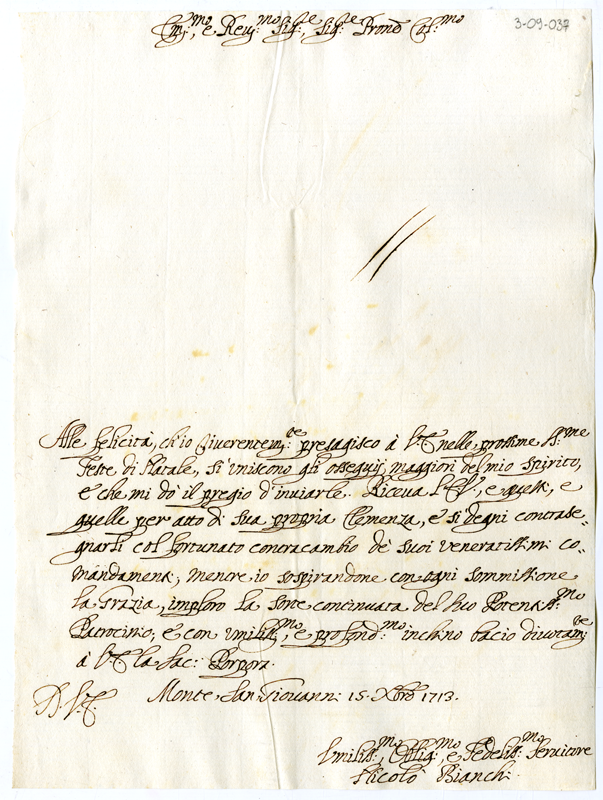 3-09-037
Em:mo, e Reu:mo Sig:re, Sig:re Pron̄e Col:mo
Alle felicità, ch'io riuerentem:te presagisco à V.E. nelle prossime SS:me
Feste di Natale, si uniscono gli ossequij maggiori del mio spirito,
e che mi dò il pregio d'inuiarle. Riceua l'E.V., e queste, e
quelle per atto di sua propria Clemenza, e si degni contrase=
gnarli col fortunato contracambio de suoi veneratissimi co=
mandamenti, mentre io sospirandone con ogni sommissione
la Grazia, imploro la sorte continuata del suo Potentiss:mo
Patrocinio, e con vmiliss:mo, e profond:mo inchino bacio diuotam:te
à V.E. la Sac: Porpora.
D. V.E. Monte San Giouanni 15. Xbre 1713.
Vmiliss:mo, Obblig:mo, e Fedeliss:mo Seruitore
Nicolò Bianchi